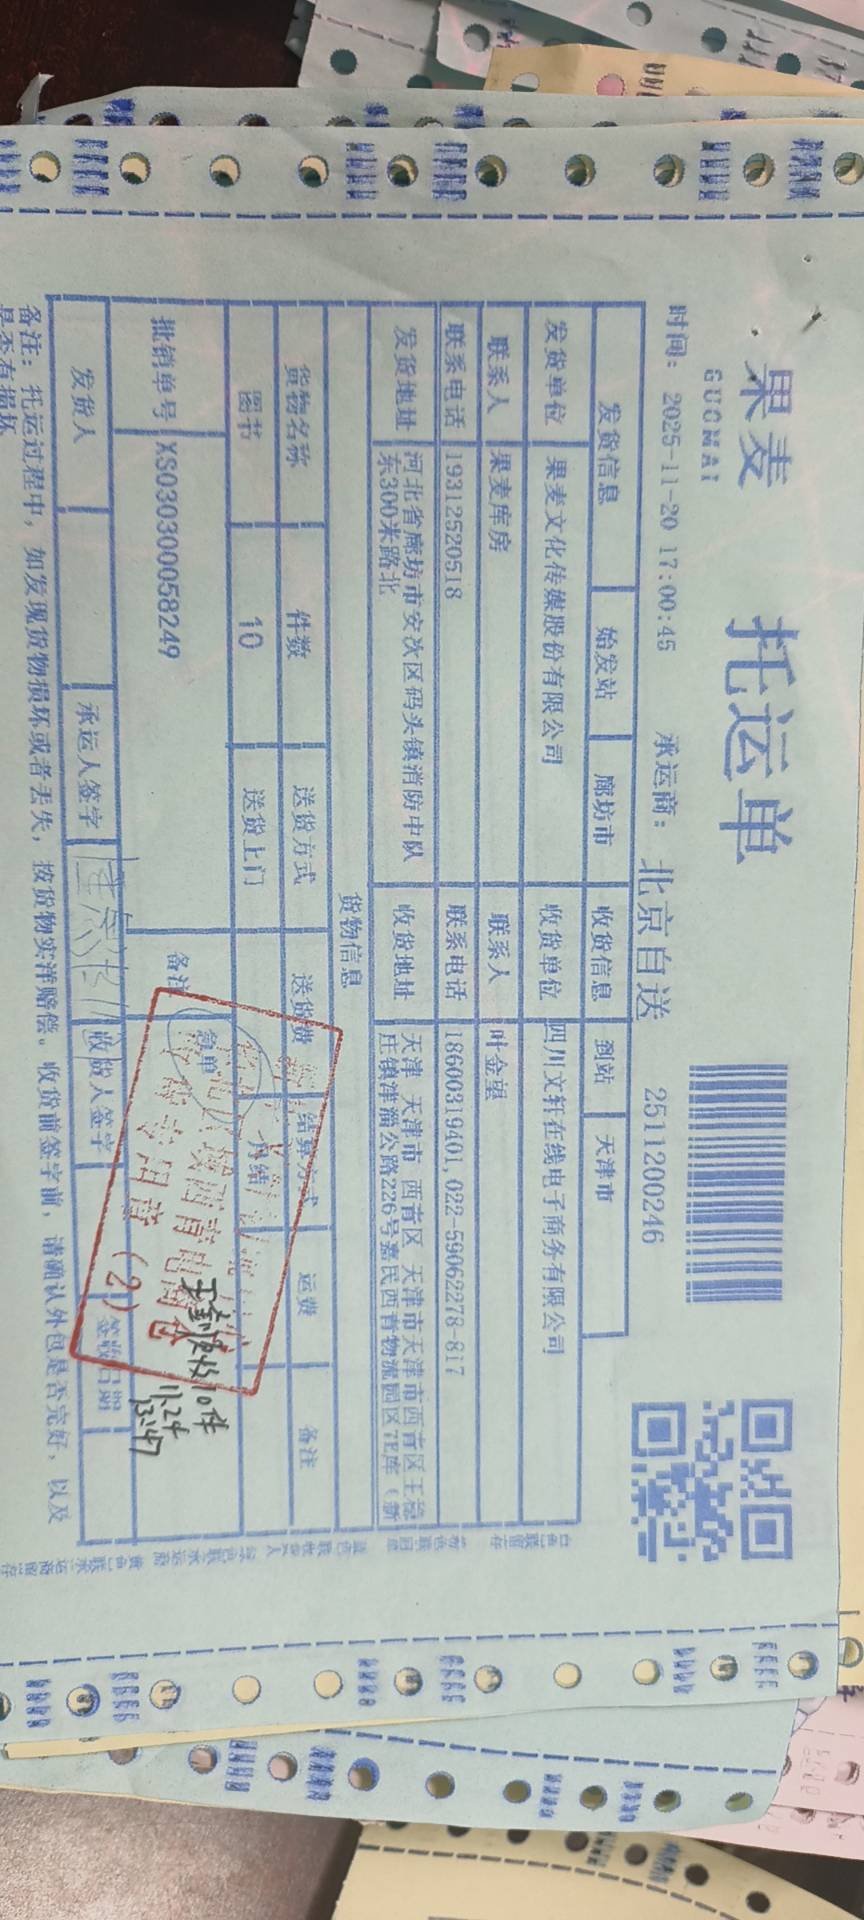 果麦
GUOMAI
托运单
时间: 2025-11-20 17:00:45 承运商: 北京自送 2511200246
发货信息 始发站 廊坊市 收货信息 到站 天津市
发货单位 果麦文化传媒股份有限公司 收货单位 四川文轩在线电子商务有限公司
联系人 果麦库房 联系人 叶金望
联系电话 19312520518 联系电话 18600319401,022-59062278-817
发货地址 河北省廊坊市安次区码头镇消防中队 收货地址 天津 天津市 西青区 天津市天津市西青区王稳
东300米路北 庄镇津淄公路226号嘉民西青物流园区7E库（新
货物信息
货物名称 件数 送货方式 送货费 结算方式 运费 备注
图书 10 送货上门 月结
批销单号 XS0303000058249 备注 急单
实收10件
11.24
13:47
发货人 承运人签字 收货人签字 签收日期
备注: 托运过程中, 如发现货物损坏或者丢失, 按货物实洋赔偿。收货前签字前, 请确认外包是否完好, 以及
是否有损坏
专用章
(2)